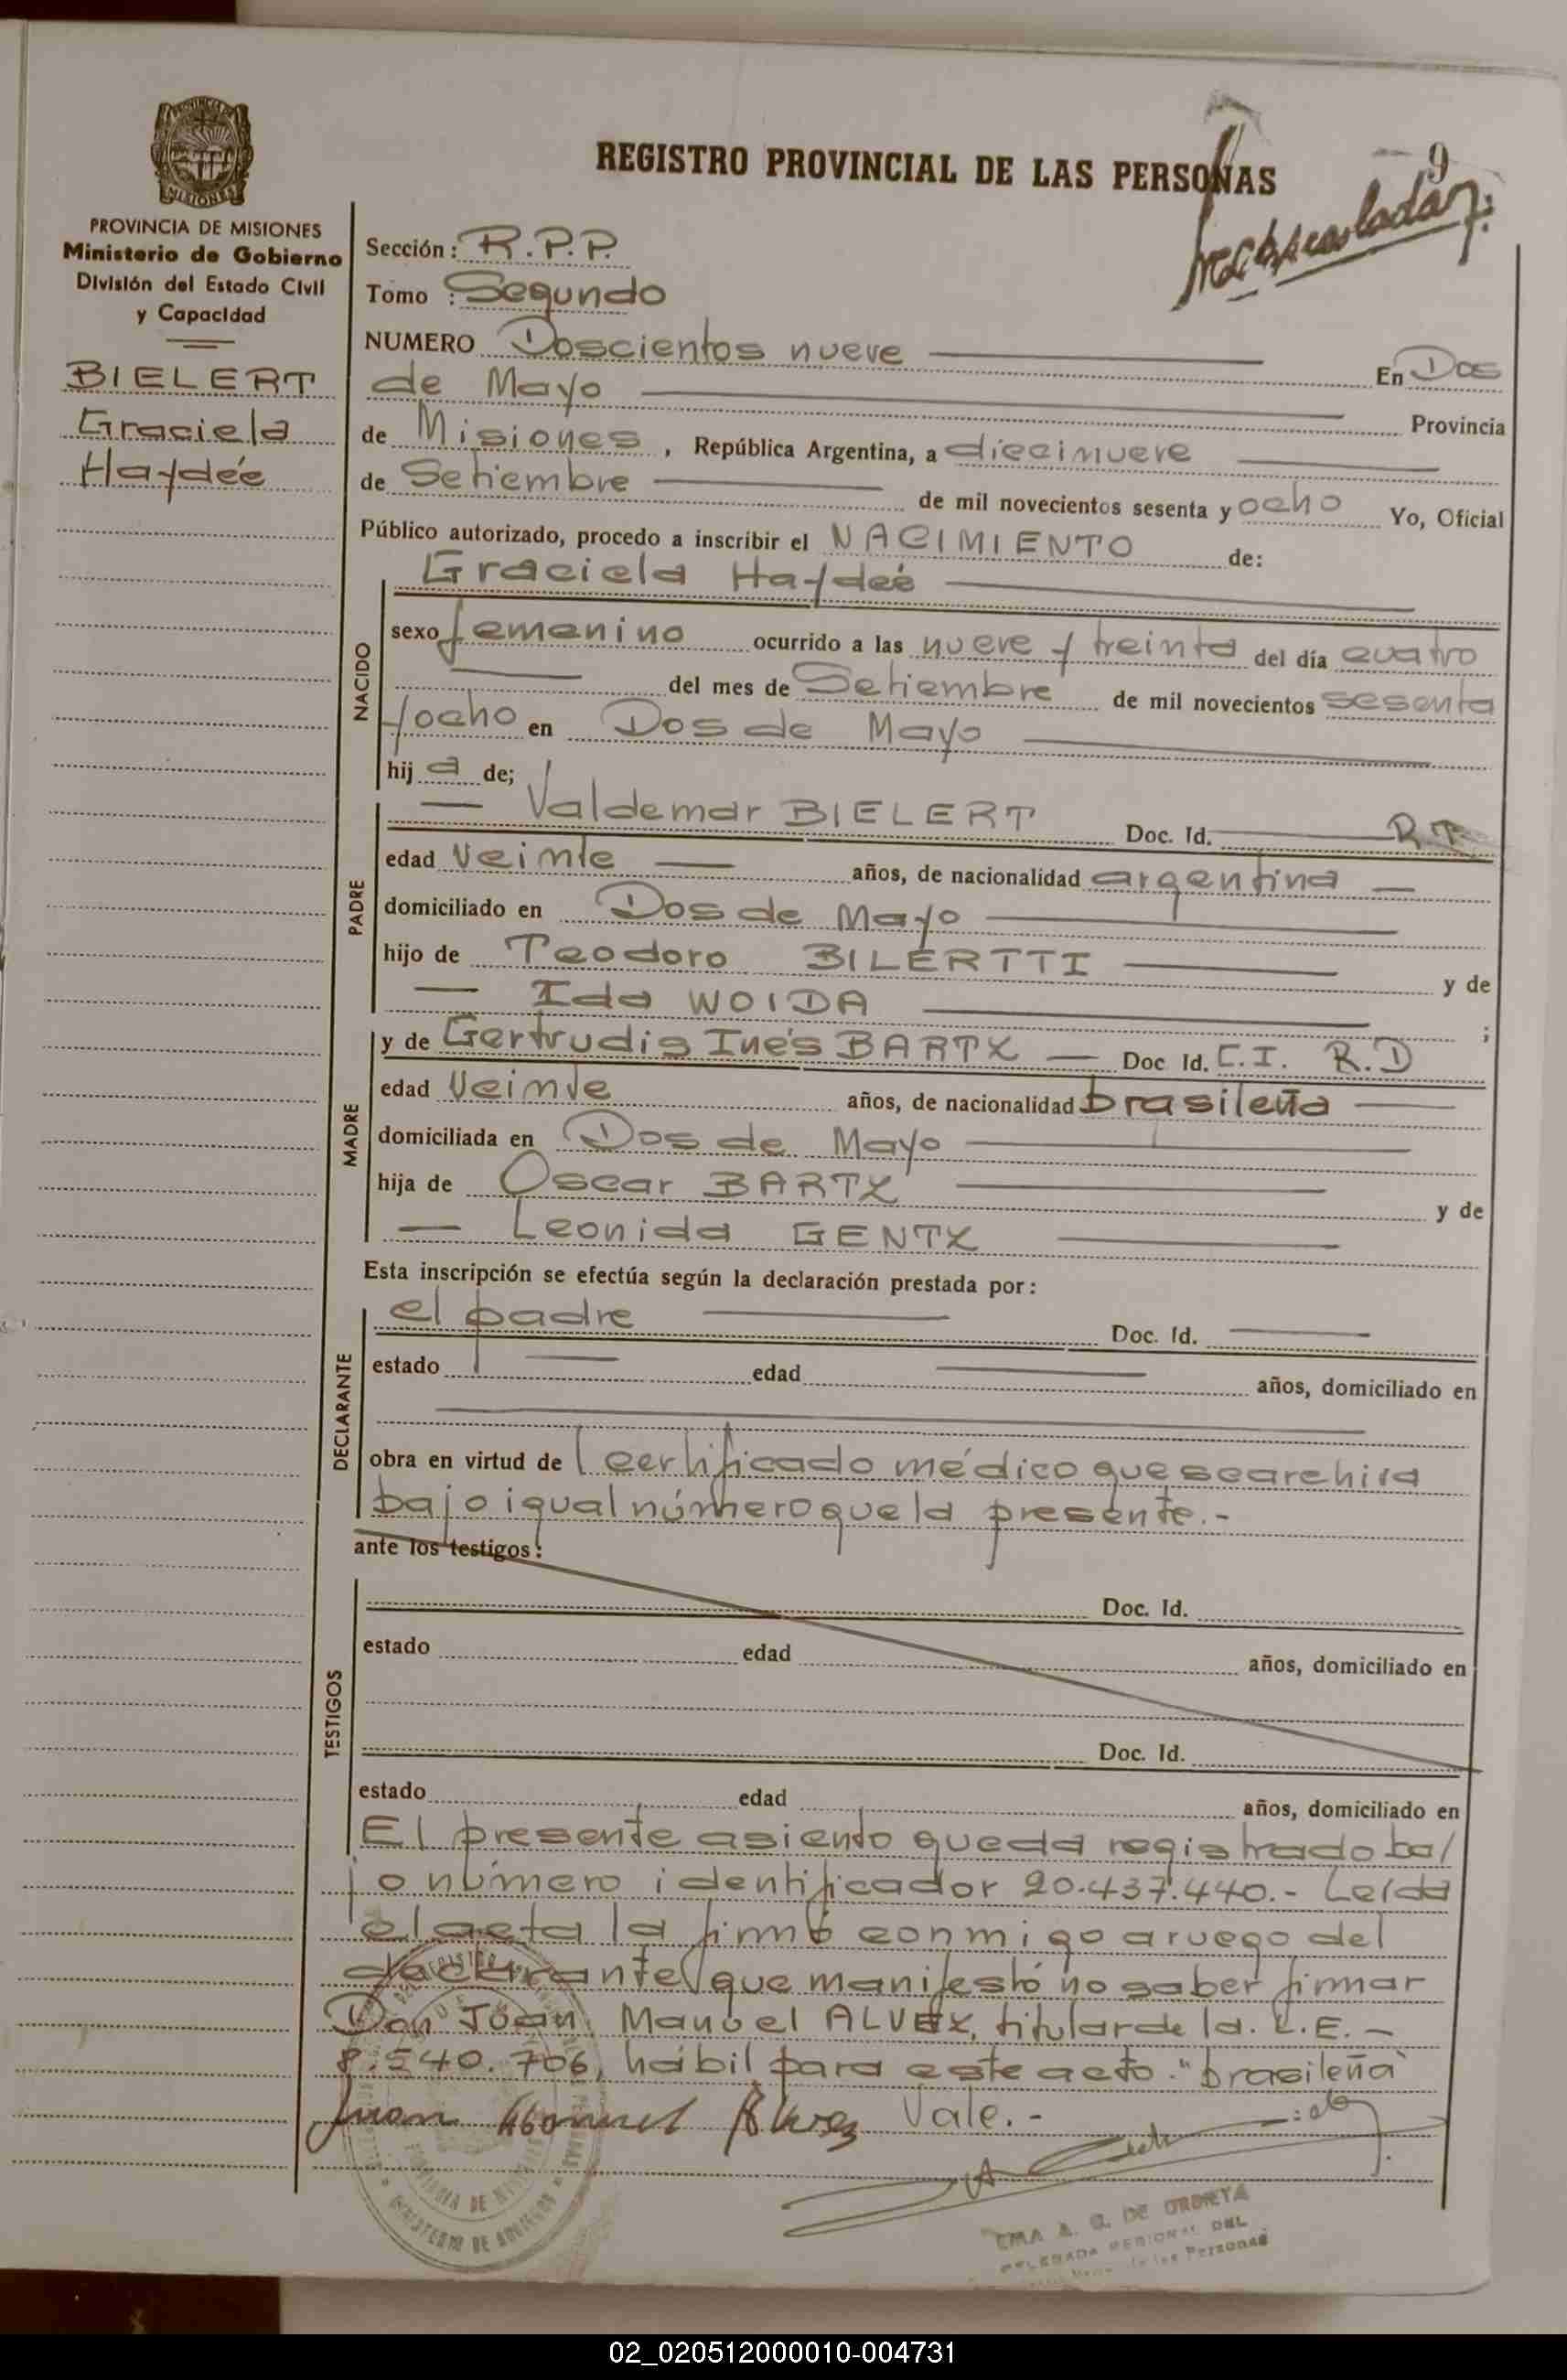 REGISTRO PROVINCIAL DE LAS PERSONAS
9
MISIONES
PROVINCIA DE MISIONES
Ministerio de Gobierno
División del Estado Civil
y Capacidad
BIELERT
Graciela
Haydée
Sección: R.P.P.
Tomo : Segundo
NUMERO Doscientos nueve En Dos
de Mayo Provincia
de Misiones, República Argentina, a diecinueve
de Setiembre de mil novecientos sesenta y ocho Yo, Oficial
Público autorizado, procedo a inscribir el NACIMIENTO de:
NACIDO
Graciela Haydeé
sexo femenino ocurrido a las nueve y treinta del día cuatro
del mes de Setiembre de mil novecientos sesenta
y ocho en Dos de Mayo
hij a de;
PADRE
Valdemar BIELERT Doc. Id.
edad Veinte años, de nacionalidad argentina
domiciliado en Dos de Mayo
hijo de Teodoro BILERTTI y de
Ida WOIDA ;
MADRE
y de Gertrudis Inés BARTZ Doc Id. C.I. R.D
edad Veinte años, de nacionalidad brasileña
domiciliada en Dos de Mayo
hija de Oscar BARTZ y de
Leonida GENTZ
Esta inscripción se efectúa según la declaración prestada por:
DECLARANTE
el padre Doc. Id.
estado edad años, domiciliado en
obra en virtud de l certificado médico que se archiva
bajo igual número que la presente.-
ante los testigos:
TESTIGOS
Doc. Id.
estado edad años, domiciliado en
Doc. Id.
estado edad años, domiciliado en
El presente asiento queda registrado ba/
jo número identificador 20.437.440.- Leída
el acta la firmó conmigo a ruego del
declarante que manifestó no saber firmar
Don Juan Manuel ALVEZ, titular de la. L.E.-
8.540.706, hábil para este acto. "brasileña"
Juan Manuel Alvez Vale.-
DE ORBIETA
DELEGADA REGIONAL DEL
de las Personas
02_020512000010-004731